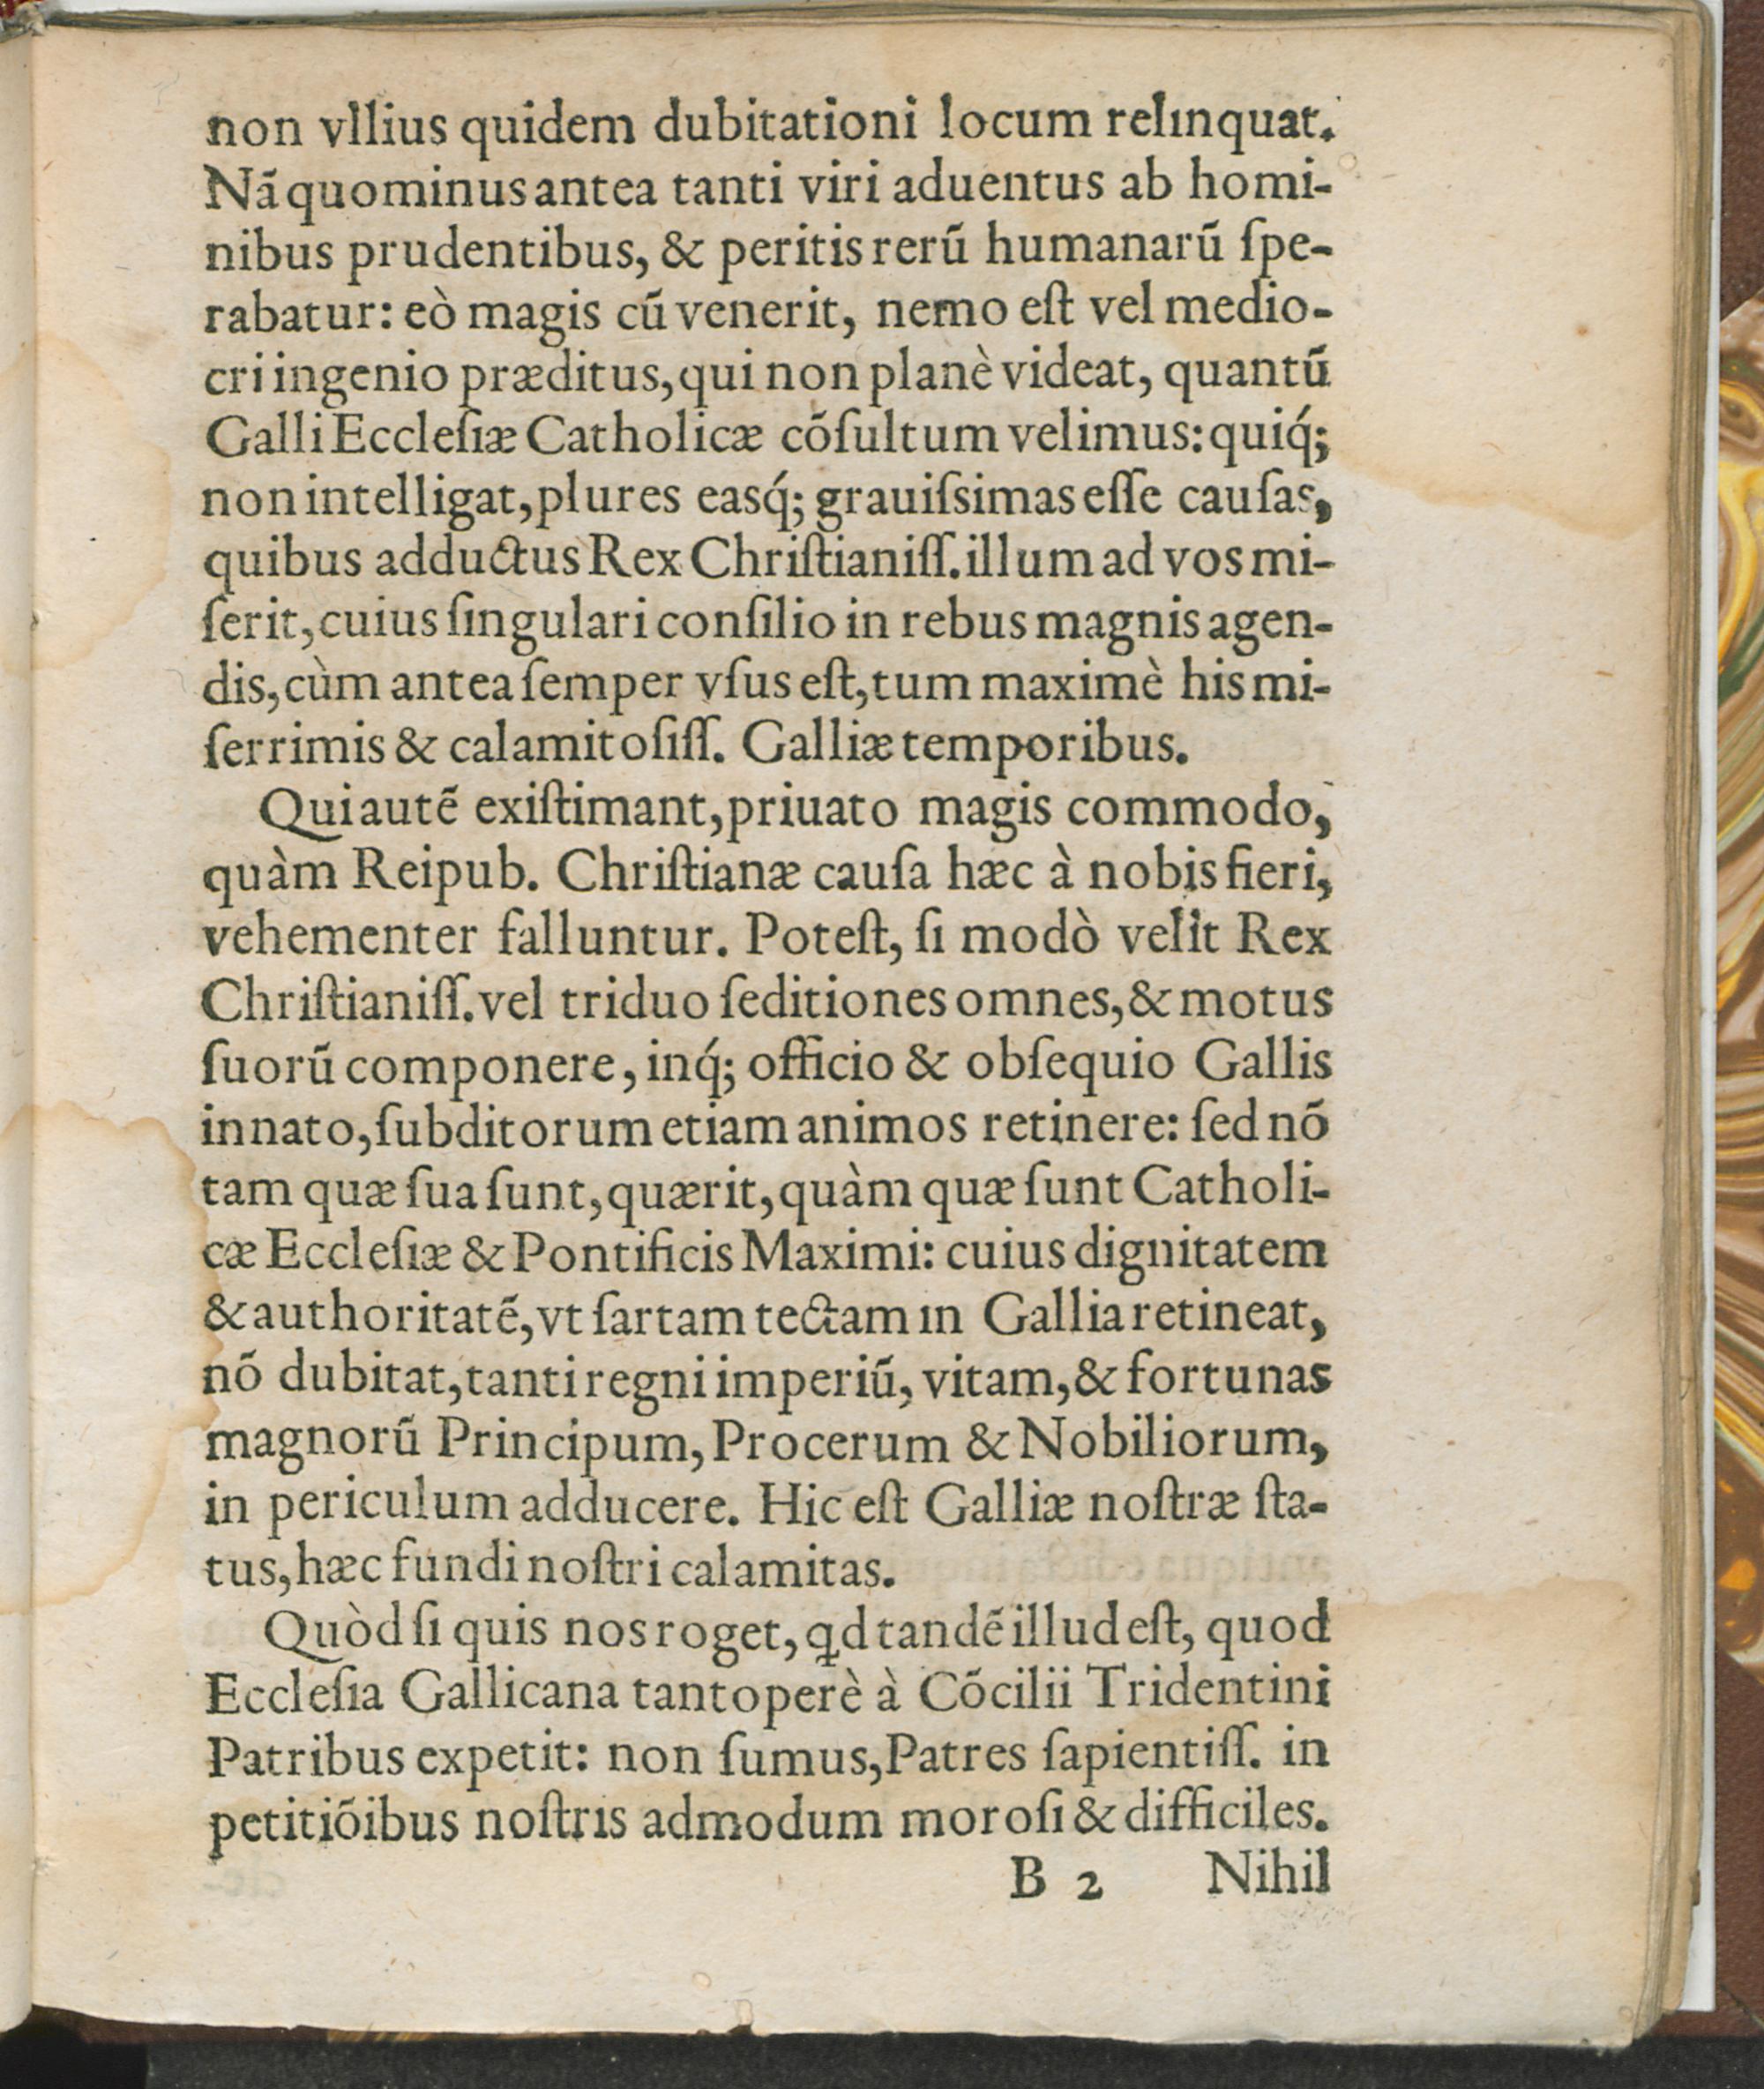 non vllius quidem dubitationi locum relinquat.
Nã quominus antea tanti viri aduentus ab homi-
nibus prudentibus, & peritis rerũ humanarũ ſpe-
rabatur: eò magis cũ venerit, nemo eſt vel medio-
cri ingenio præditus, qui non planè videat, quantũ
Galli Eccleſiæ Catholicæ cõſultum velimus: quiq́;
non intelligat, plures easq́; grauiſsimas eſſe cauſas,
quibus adductus Rex Chriſtianiſſ. illum ad vos mi-
ſerit, cuius ſingulari conſilio in rebus magnis agen-
dis, cùm antea ſemper vſus eſt, tum maximè his mi-
ſerrimis & calamitoſiſſ. Galliæ temporibus.
Qui autẽ exiſtimant, priuato magis commodo,
quàm Reipub. Chriſtianæ cauſa hæc à nobis fieri,
vehementer falluntur. Poteſt, ſi modò velit Rex
Chriſtianiſſ. vel triduo ſeditiones omnes, & motus
ſuorũ componere, inq́; officio & obſequio Gallis
innato, ſubditorum etiam animos retinere: ſed nõ
tam quæ ſua ſunt, quærit, quàm quæ ſunt Catholi-
cæ Eccleſiæ & Pontificis Maximi: cuius dignitatem
& authoritatẽ, vt ſartam tectam in Gallia retineat,
nõ dubitat, tanti regni imperiũ, vitam, & fortunas
magnorũ Principum, Procerum & Nobiliorum,
in periculum adducere. Hic eſt Galliæ noſtræ ſta-
tus, hæc fundi noſtri calamitas.
Quòd ſi quis nos roget, qd tandẽ illud eſt, quod
Eccleſia Gallicana tantoperè à Cõcilii Tridentini
Patribus expetit: non ſumus, Patres ſapientiſſ. in
petitiõibus noſtris admodum moroſi & difficiles.
B 2 Nihil